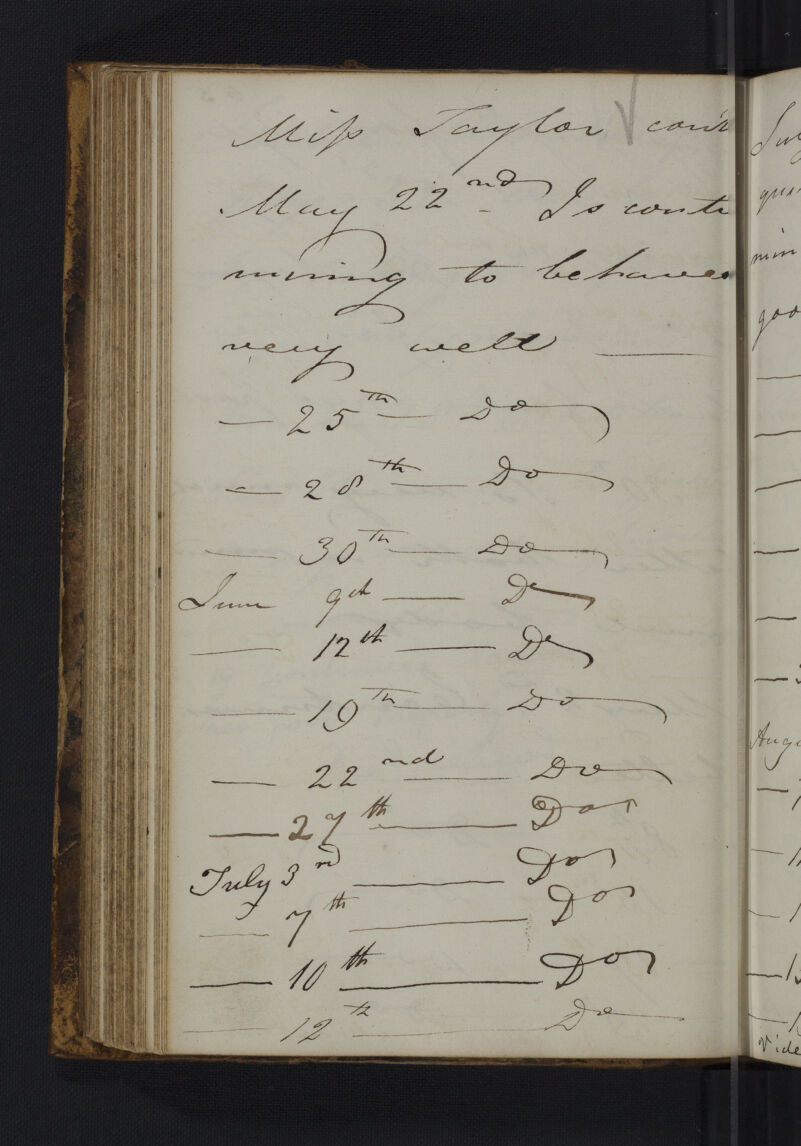 Miss Taylor con'd
May 22nd - Is conti
nuing to behave
very well —
— 25th — Do
— 28th — Do
— 30th — Do
June 9th — Do
— 12th — Do
— 19th — Do
— 22nd — Do
— 27th — Do
July 3rd — Do
— 7th — Do
— 10th — Do
— 12th — Do
goo
Augu
Vide